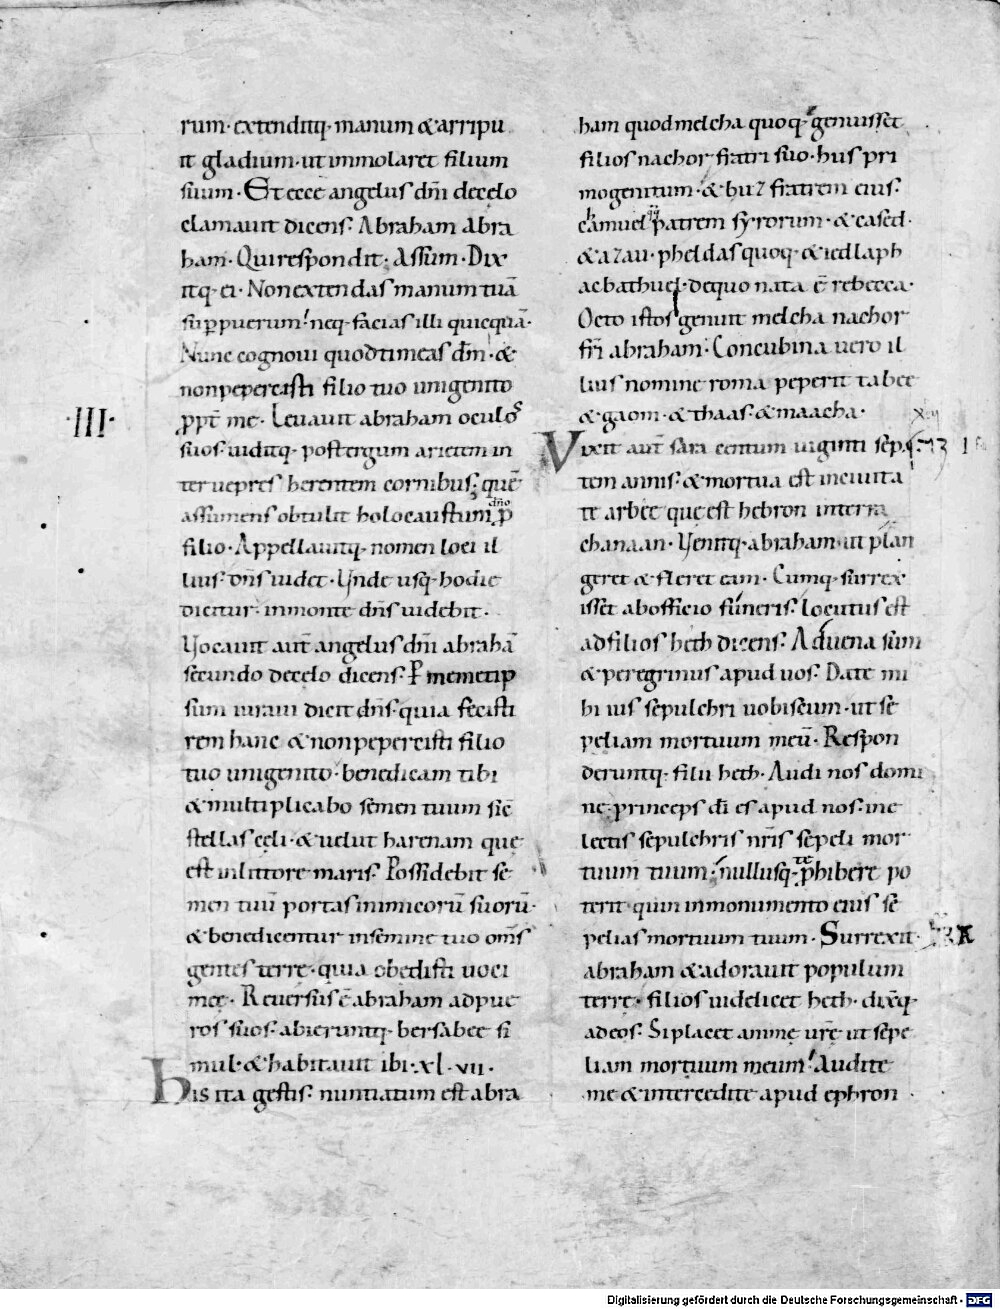 rum· extenditq· manum & arripu
it gladium· ut immolaret filium
suum· Et ecce angelus dñi decelo
clamauit dicens: Abraham abra
ham· Qui respondit· Assum· Dix
itq· ei· Non extendas manum tuā
sup puerum! neq· facias illi quicquā·
Nunc cognoui quod times dm̄· &
non pepercisti filio tuo unigenito
ppt me· Leuauit abraham oculos
III·
suos· uiditq· post tergum arietem in
ter uepres herentem cornibus: quē
assumens obtulit holocaustum dño p̄
filio· Appellauitq· nomen loci il
lius· dn̄s uidet· Unde usq· hodie
dicitur· in monte dn̄s uidebit·
Uocauit aut̄ angelus dñi abrahā
secundo decelo dicens: P memetip
sum iuraui dicit dn̄s· quia fecisti
rem hanc & non pepercisti filio
tuo unigenito· benedicam tibi
& multiplicabo semen tuum sic̄
stellas celi· & uelut harenam que
est in littore maris: Possidebit se
men tuū portas inimicorū suorū·
& benedicentur in semine tuo om̄s
gentes terre· quia obedisti uoci
mee· Reuersus ē abraham ad pue
ros suos· abieruntq· bersabee si
mul· & habitauit ibi· xl·vii·
His ita gestis: nuntiatum est abra
ham quod melcha quoq· genuisset
filios nachor fratri suo· hus pri
mogenitum· & buz fratrem eius:
camuel patrem syrorum· & cased·
& azau· pheldas quoq· & iedlaph
ac bathuel· de quo nata ē rebecca·
Octo istos genuit melcha nachor
fr̄i abraham· Concubina uero il
lius nomine roma peperit tabee
& gaom· & thaas· & maacha·
Vixit aut̄ sara centum uiginti sep
tem annis: & mortua est in ciuita
te arbee que est hebron in terra
chanaan· Uenitq· abraham· ut plan
geret & fleret eam· Cumq· surrex
isset ab officio funeris: locutus est
ad filios heth dicens: Aduena sum
& peregrinus apud uos: Date mi
hi ius sepulchri uobiscum· ut se
peliam mortuum meū· Respon
deruntq· filii heth· Audi nos domi
ne· princeps dī es apud nos: in e
lectis sepulchris nr̄is sepeli mor
tuum tuum· nullusq· te phibere po
terit quin in monumento eius se
pelias mortuum tuum· Surrexit·
abraham & adorauit populum
terre· filios uidelicet heth· dixq·
ad eos: Si placet anime ur̄e ut sepe
liam mortuum meum! Audite
me & intercedite apud ephron
Digitalisierung gefördert durch die Deutsche Forschungsgemeinschaft - DFG